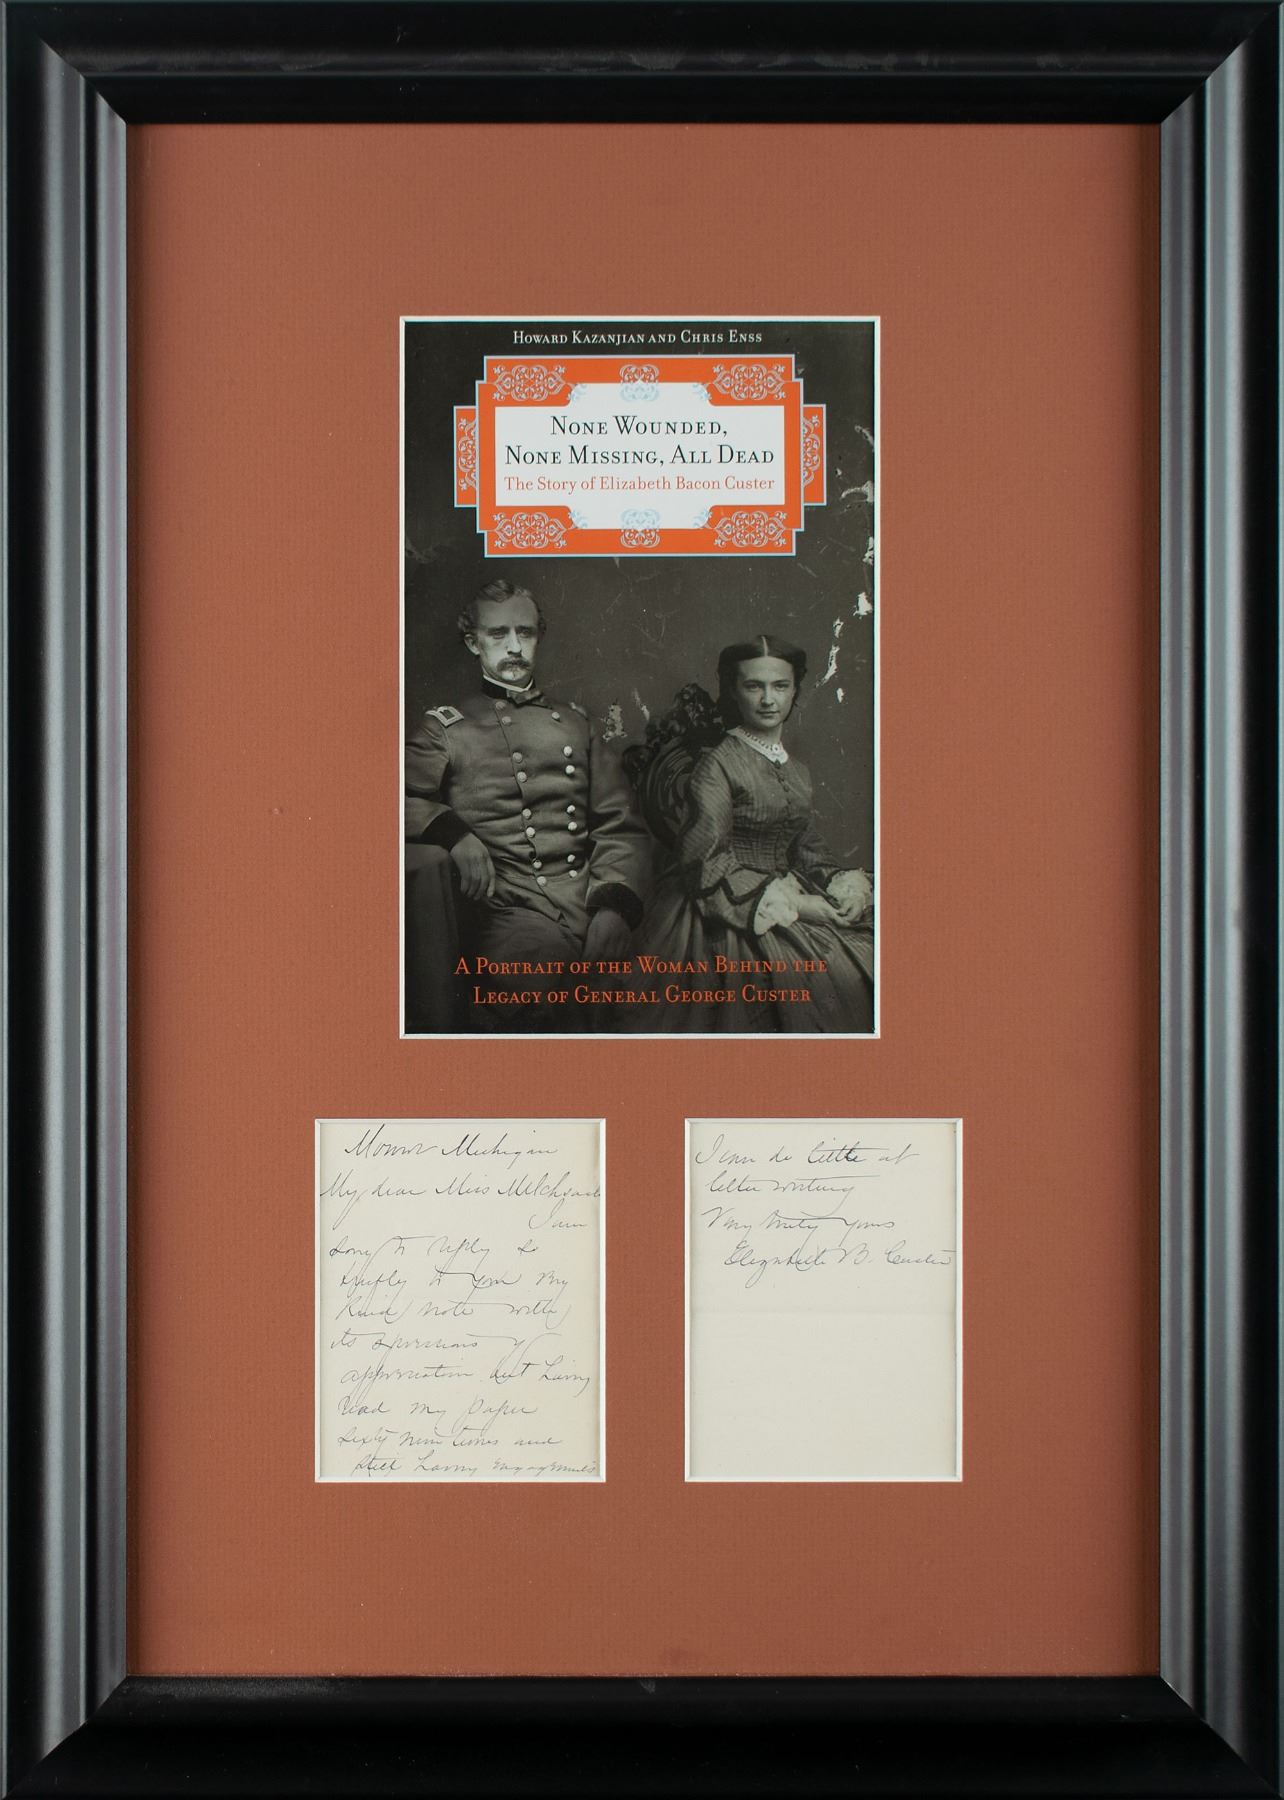 Howard Kazanjian and Chris Enss
None Wounded,
None Missing, All Dead
The Story of Elizabeth Bacon Custer
A Portrait of the Woman Behind the
Legacy of General George Custer
Monroe Michigan
My dear Miss
I am
sorry to reply so
briefly to your
kind note with
its expressions of
appreciation but having
read my paper
sixty nine times and
still having engagements
I can do little at
letter writing
Very truly yours
Elizabeth B. Custer